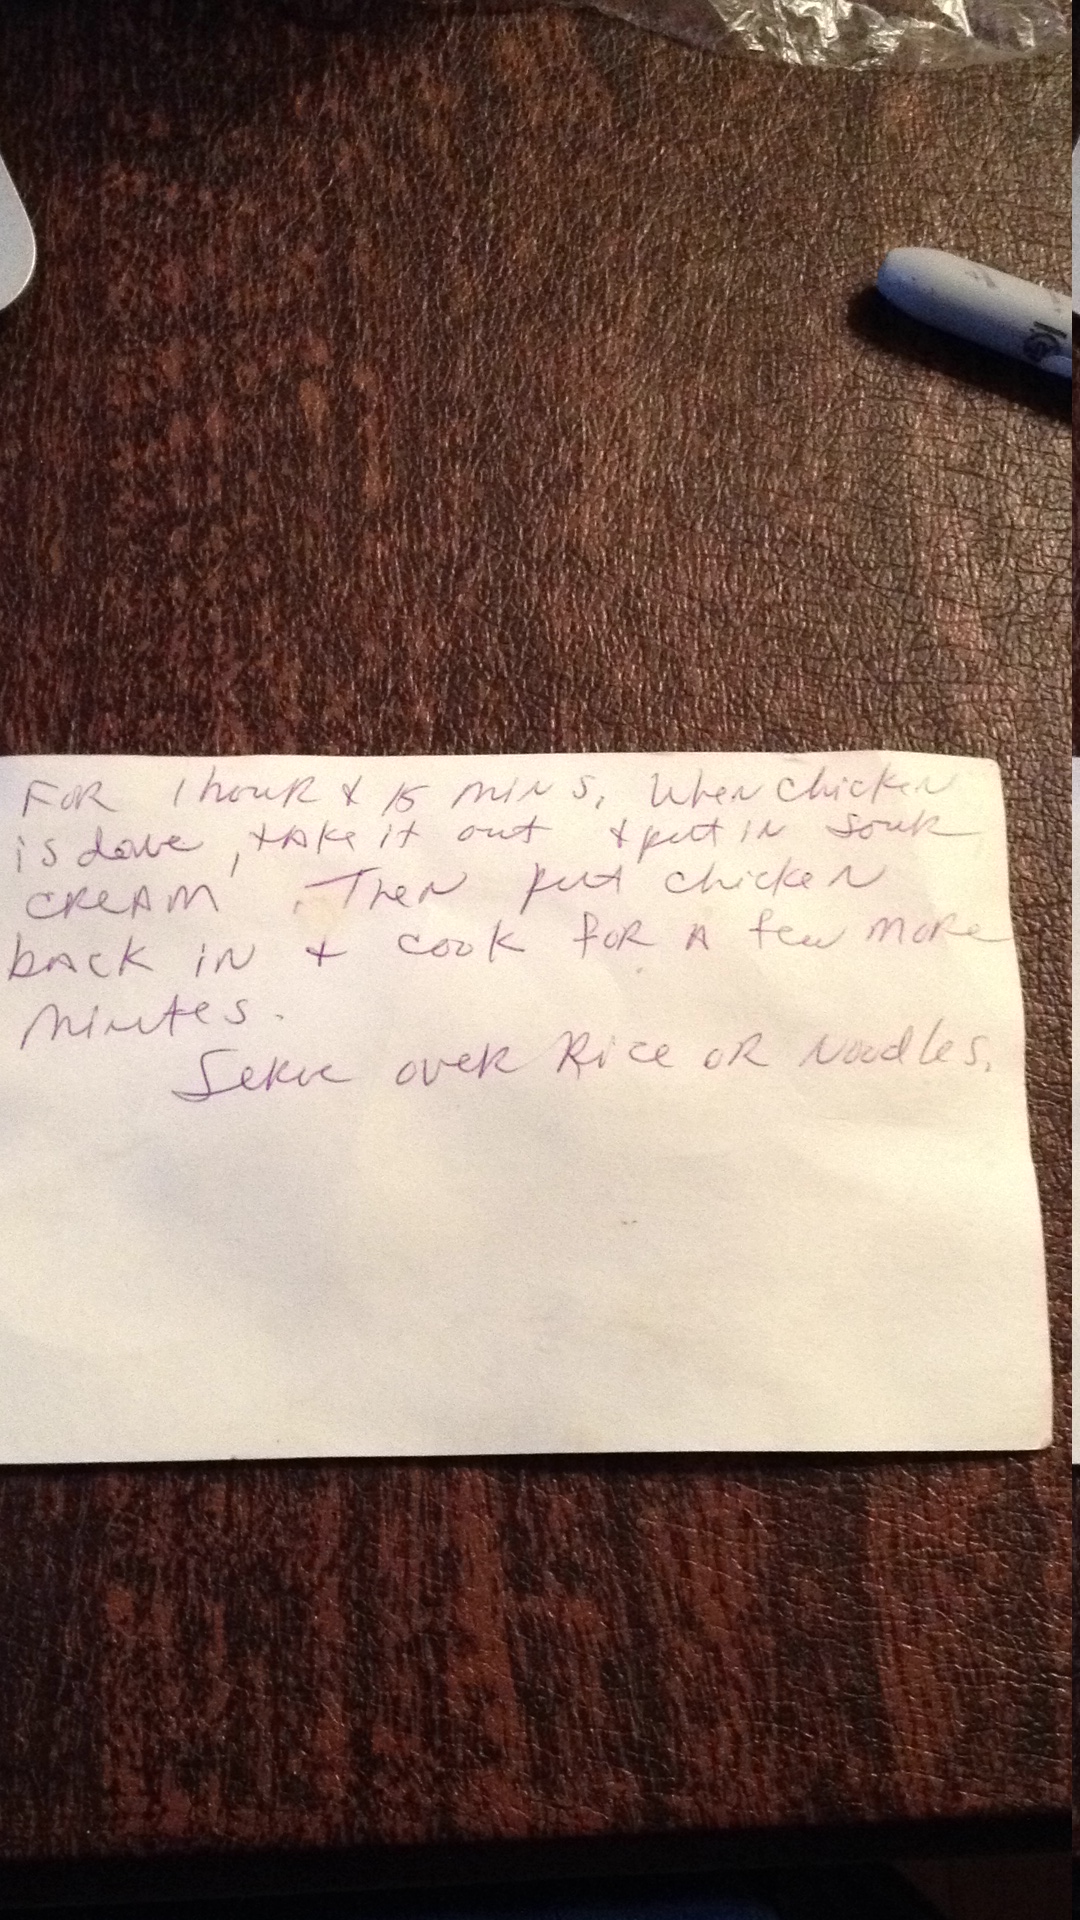 FOR 1 hour & 15 mins. When chicken
is done, take it out & put in sour
cream. Then put chicken
back in & cook for a few more
minutes.
Serve over Rice or Noodles.